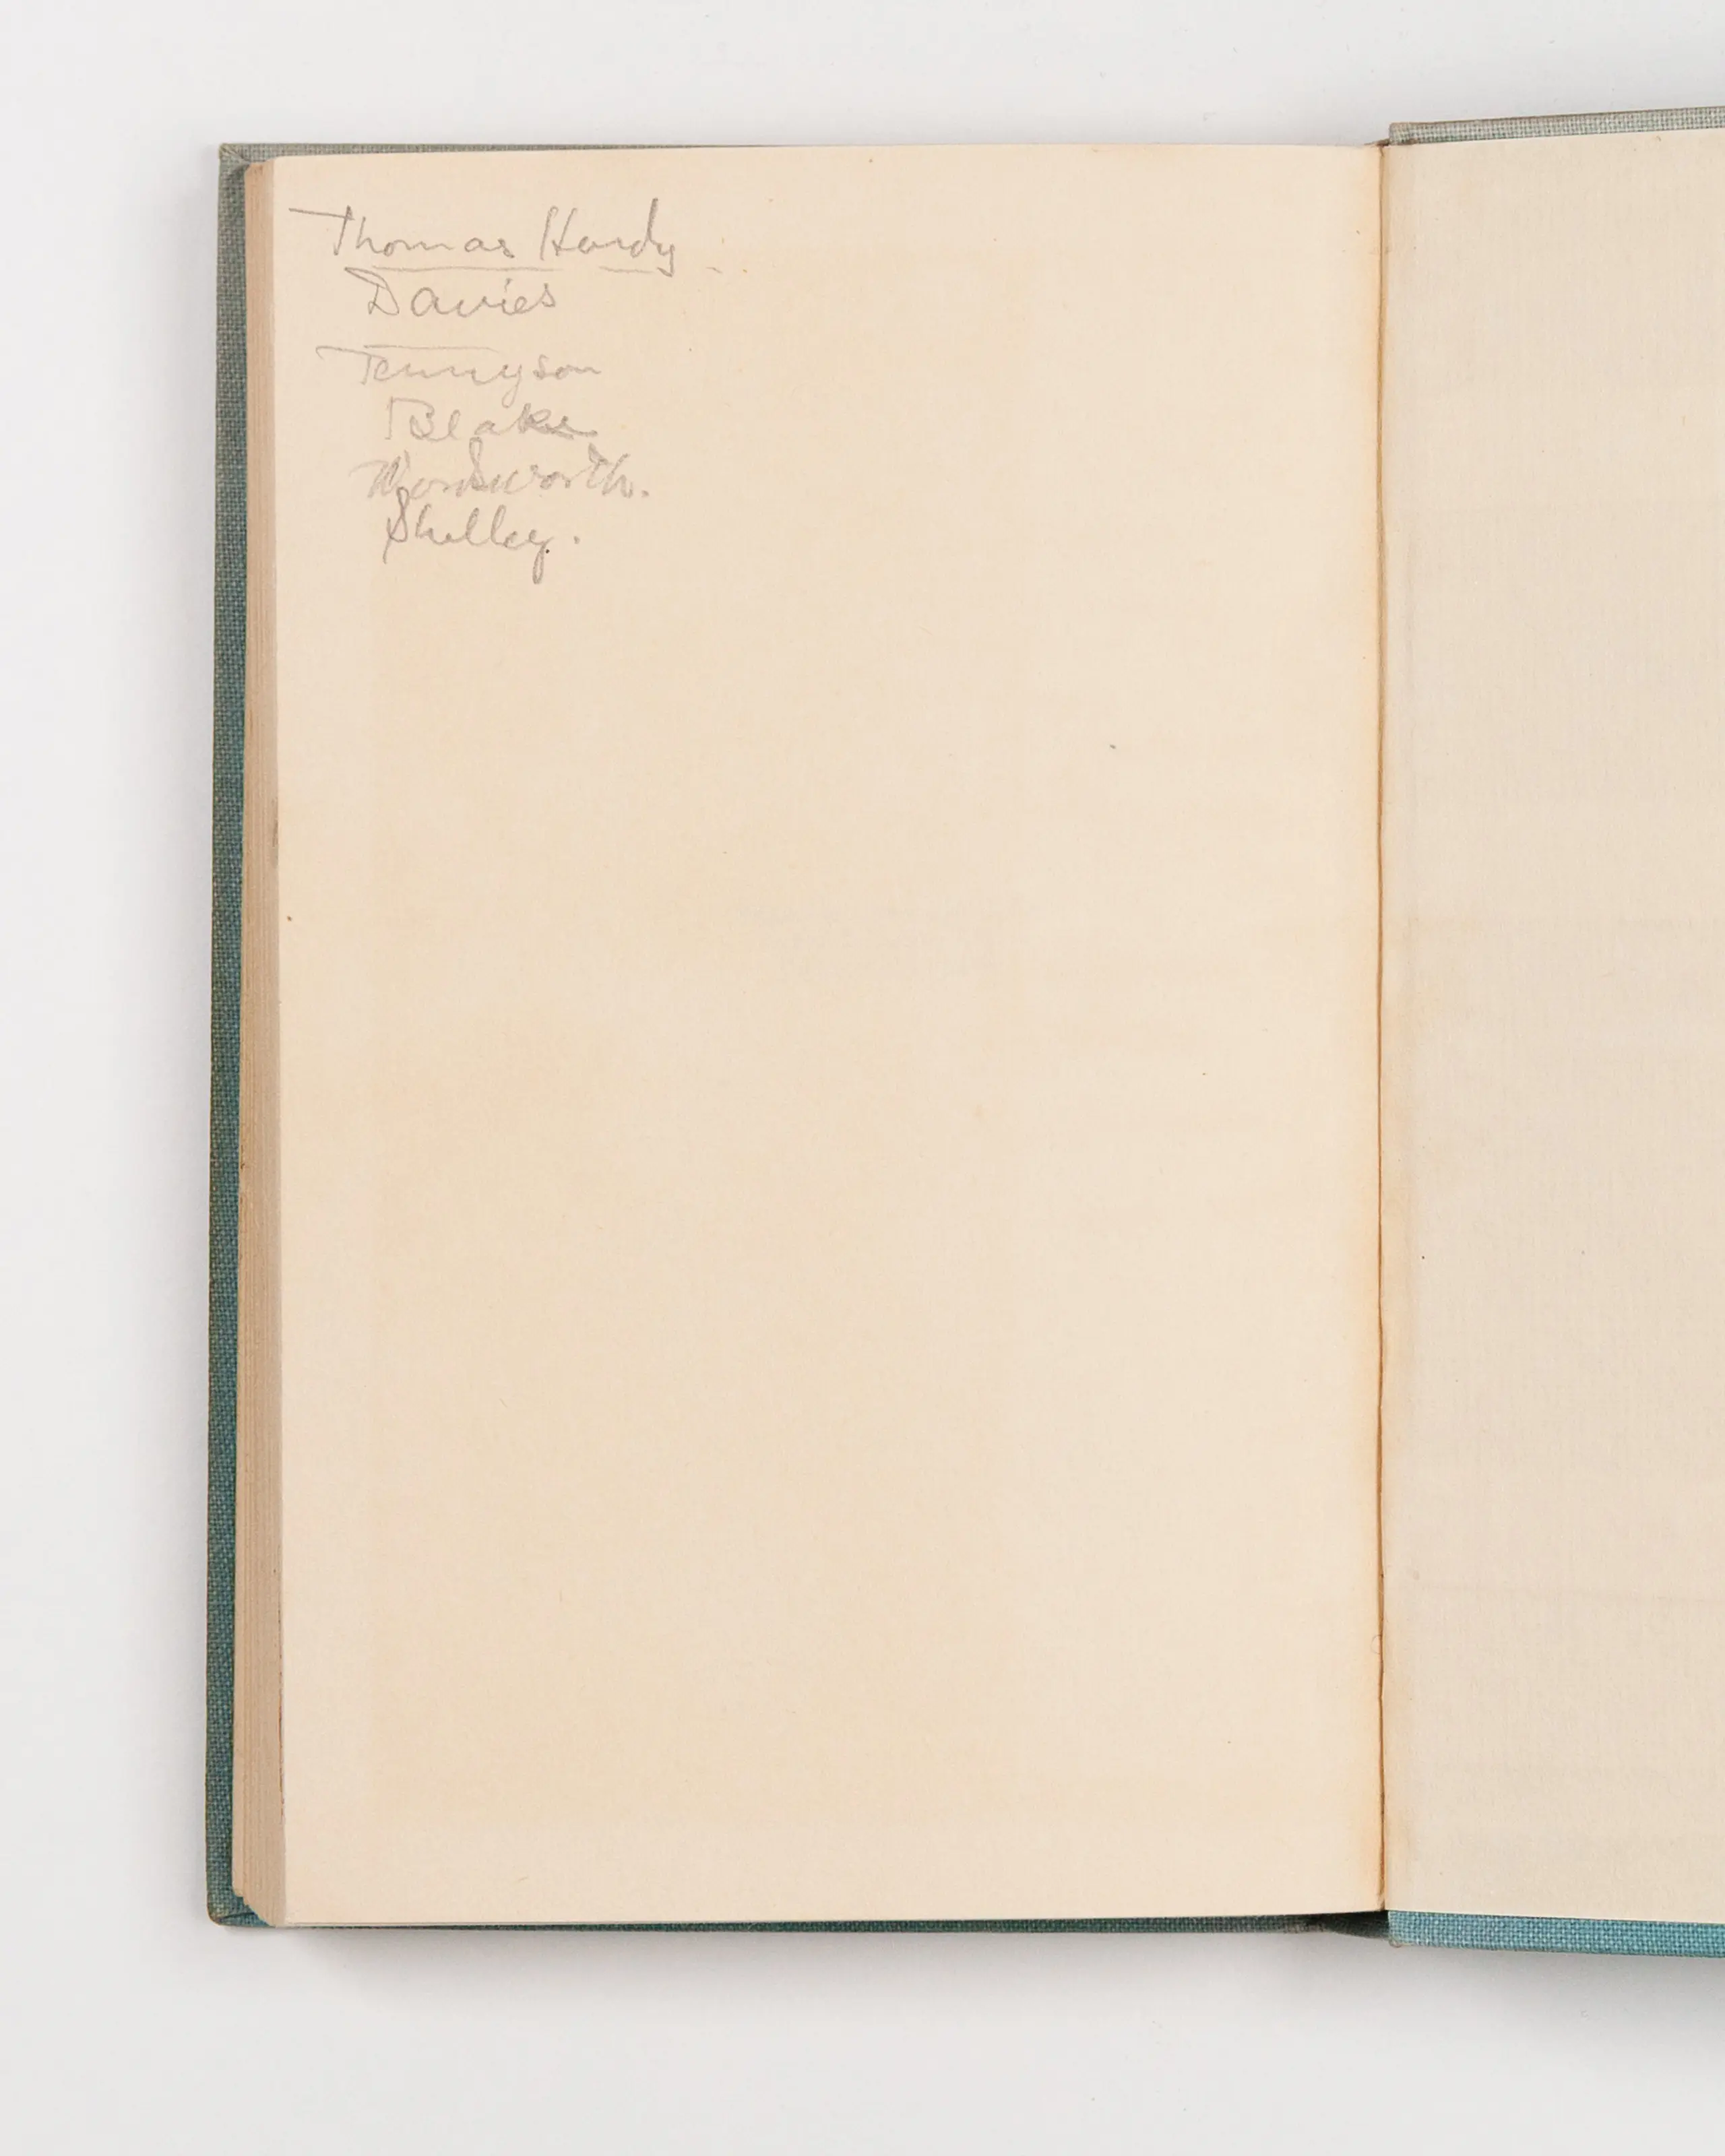 Thomas Hardy
Davies
Tennyson
Blake
Wordsworth.
Shelley.